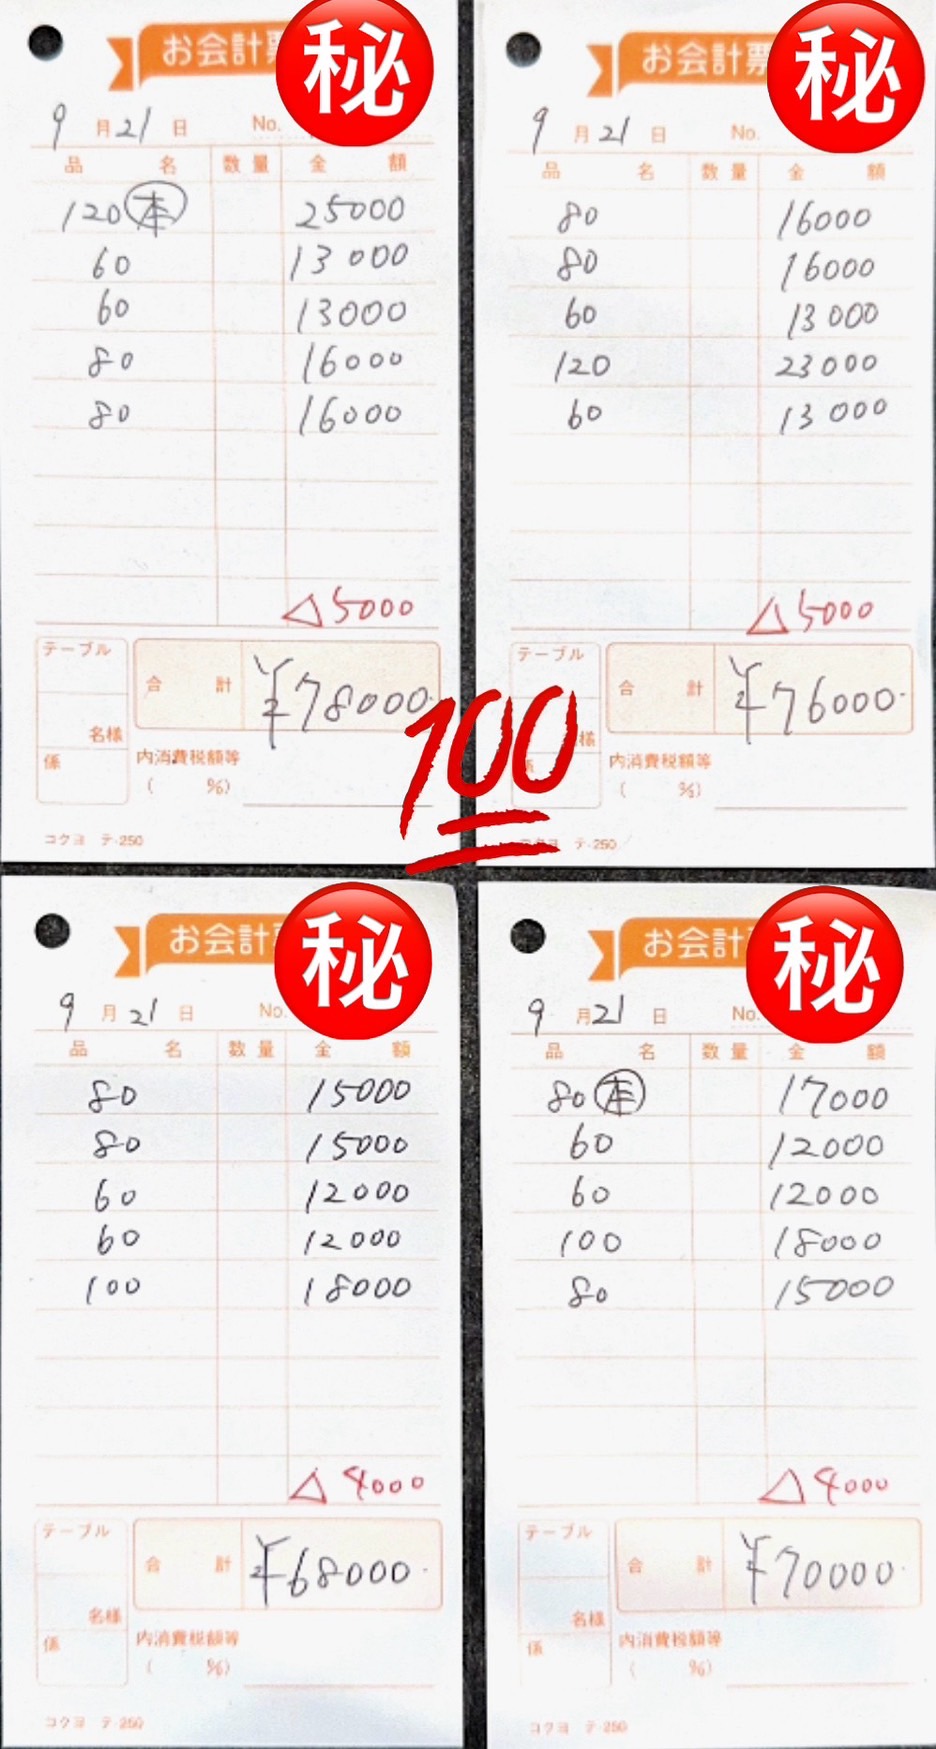 お会計票
㊙
9月21日 No.
品名 数量 金額
120㊍ 25000
60 13000
60 13000
80 16000
80 16000
△5000
テーブル
名様
係
合計 ¥78000.
内消費税額等
( %)
コクヨ テ-250
お会計票
㊙
9月21日 No.
品名 数量 金額
80 16000
80 16000
60 13000
120 23000
60 13000
△5000
テーブル
様
係
合計 ¥76000.
内消費税額等
( %)
コクヨ テ-250
100
お会計票
㊙
9月21日 No.
品名 数量 金額
80 15000
80 15000
60 12000
60 12000
100 18000
△4000
テーブル
名様
係
合計 ¥68000.
内消費税額等
( %)
コクヨ テ-250
お会計票
㊙
9月21日 No.
品名 数量 金額
80(本) 17000
60 12000
60 12000
100 18000
80 15000
△4000
テーブル
名様
係
合計 ¥70000.
内消費税額等
( %)
コクヨ テ-250